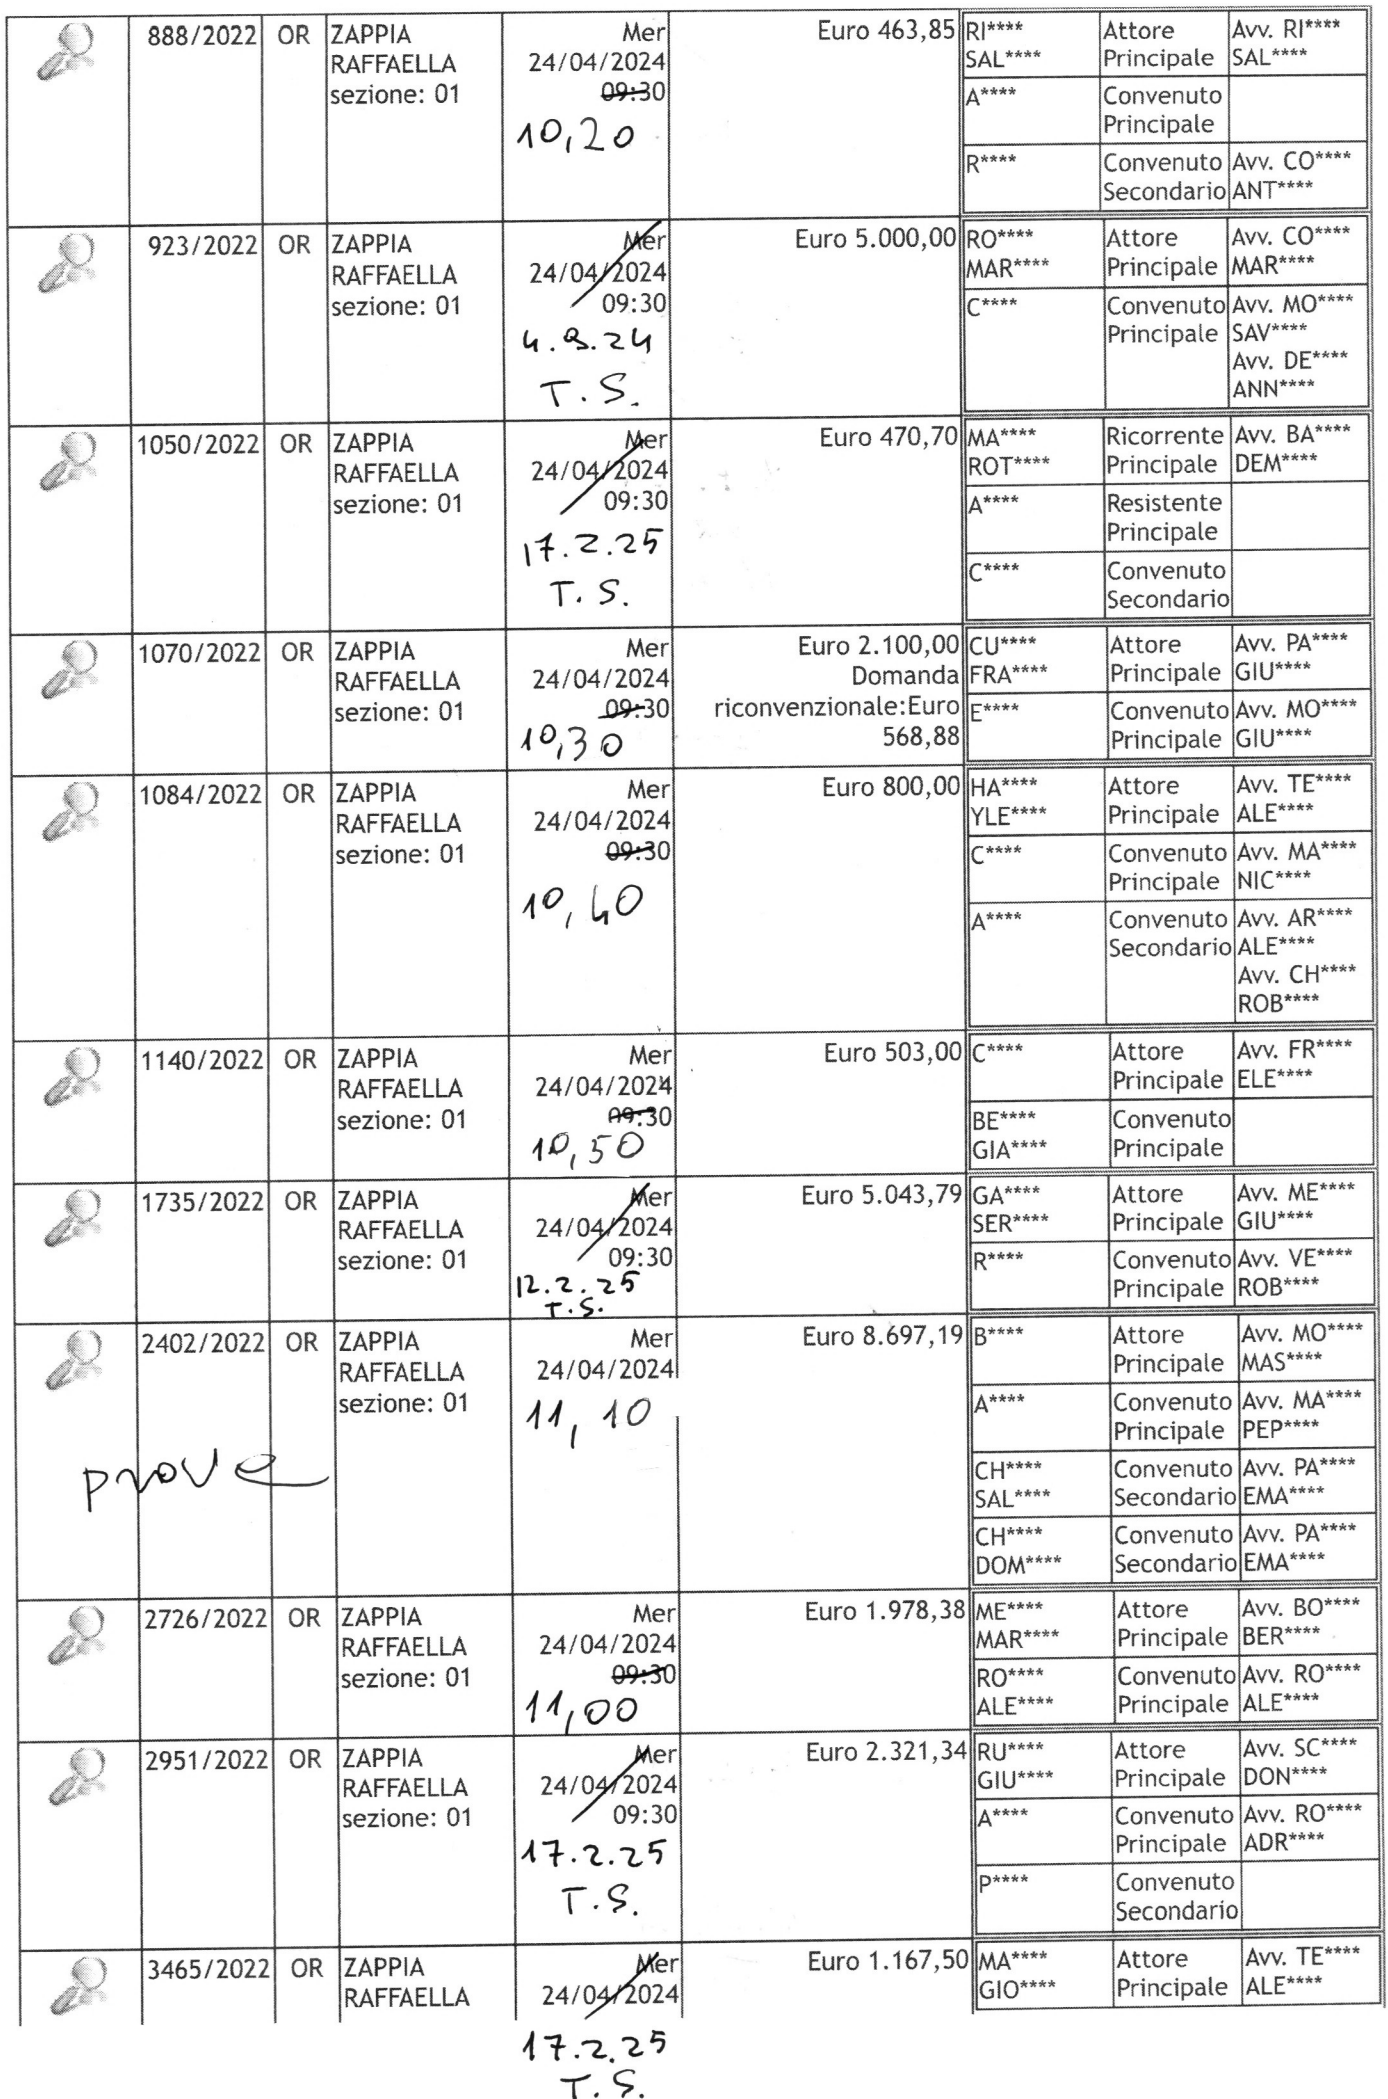 888/2022 OR ZAPPIA RAFFAELLA sezione: 01
Mer 24/04/2024 09:30
10,20
Euro 463,85
RI**** SAL**** Attore Principale Avv. RI**** SAL****
A**** Convenuto Principale
R**** Convenuto Secondario Avv. CO**** ANT****
923/2022 OR ZAPPIA RAFFAELLA sezione: 01
Mer 24/04/2024 09:30
T.S.
Euro 5.000,00
RO**** MAR**** Attore Principale Avv. CO**** MAR****
C**** Convenuto Principale Avv. MO**** SAV**** Avv. DE**** ANN****
1050/2022 OR ZAPPIA RAFFAELLA sezione: 01
Mer 24/04/2024 09:30
17.2.25
T.S.
Euro 470,70
MA**** ROT**** Ricorrente Principale Avv. BA**** DEM****
A**** Resistente Principale
C**** Convenuto Secondario
1070/2022 OR ZAPPIA RAFFAELLA sezione: 01
Mer 24/04/2024 09:30
10,30
Euro 2.100,00 Domanda riconvenzionale:Euro 568,88
CU**** FRA**** Attore Principale Avv. PA**** GIU****
E**** Convenuto Principale Avv. MO**** GIU****
1084/2022 OR ZAPPIA RAFFAELLA sezione: 01
Mer 24/04/2024 09:30
10,40
Euro 800,00
HA**** YLE**** Attore Principale Avv. TE**** ALE****
C**** Convenuto Principale Avv. MA**** NIC****
A**** Convenuto Secondario Avv. AR**** ALE**** Avv. CH**** ROB****
1140/2022 OR ZAPPIA RAFFAELLA sezione: 01
Mer 24/04/2024 09:30
10,50
Euro 503,00
C**** Attore Principale Avv. FR**** ELE****
BE**** GIA**** Convenuto Principale
1735/2022 OR ZAPPIA RAFFAELLA sezione: 01
Mer 24/04/2024 09:30
12.2.25
T.S.
Euro 5.043,79
GA**** SER**** Attore Principale Avv. ME**** GIU****
R**** Convenuto Principale Avv. VE**** ROB****
2402/2022 OR ZAPPIA RAFFAELLA sezione: 01
Mer 24/04/2024
11,10
prove
Euro 8.697,19
B**** Attore Principale Avv. MO**** MAS****
A**** Convenuto Principale Avv. MA**** PEP****
CH**** SAL**** Convenuto Secondario Avv. PA**** EMA****
CH**** DOM**** Convenuto Secondario Avv. PA**** EMA****
2726/2022 OR ZAPPIA RAFFAELLA sezione: 01
Mer 24/04/2024 09:30
11,00
Euro 1.978,38
ME**** MAR**** Attore Principale Avv. BO**** BER****
RO**** ALE**** Convenuto Principale Avv. RO**** ALE****
2951/2022 OR ZAPPIA RAFFAELLA sezione: 01
Mer 24/04/2024 09:30
17.2.25
T.S.
Euro 2.321,34
RU**** GIU**** Attore Principale Avv. SC**** DON****
A**** Convenuto Principale Avv. RO**** ADR****
P**** Convenuto Secondario
3465/2022 OR ZAPPIA RAFFAELLA
Mer 24/04/2024
17.2.25
T.S.
Euro 1.167,50
MA**** GIO**** Attore Principale Avv. TE**** ALE****